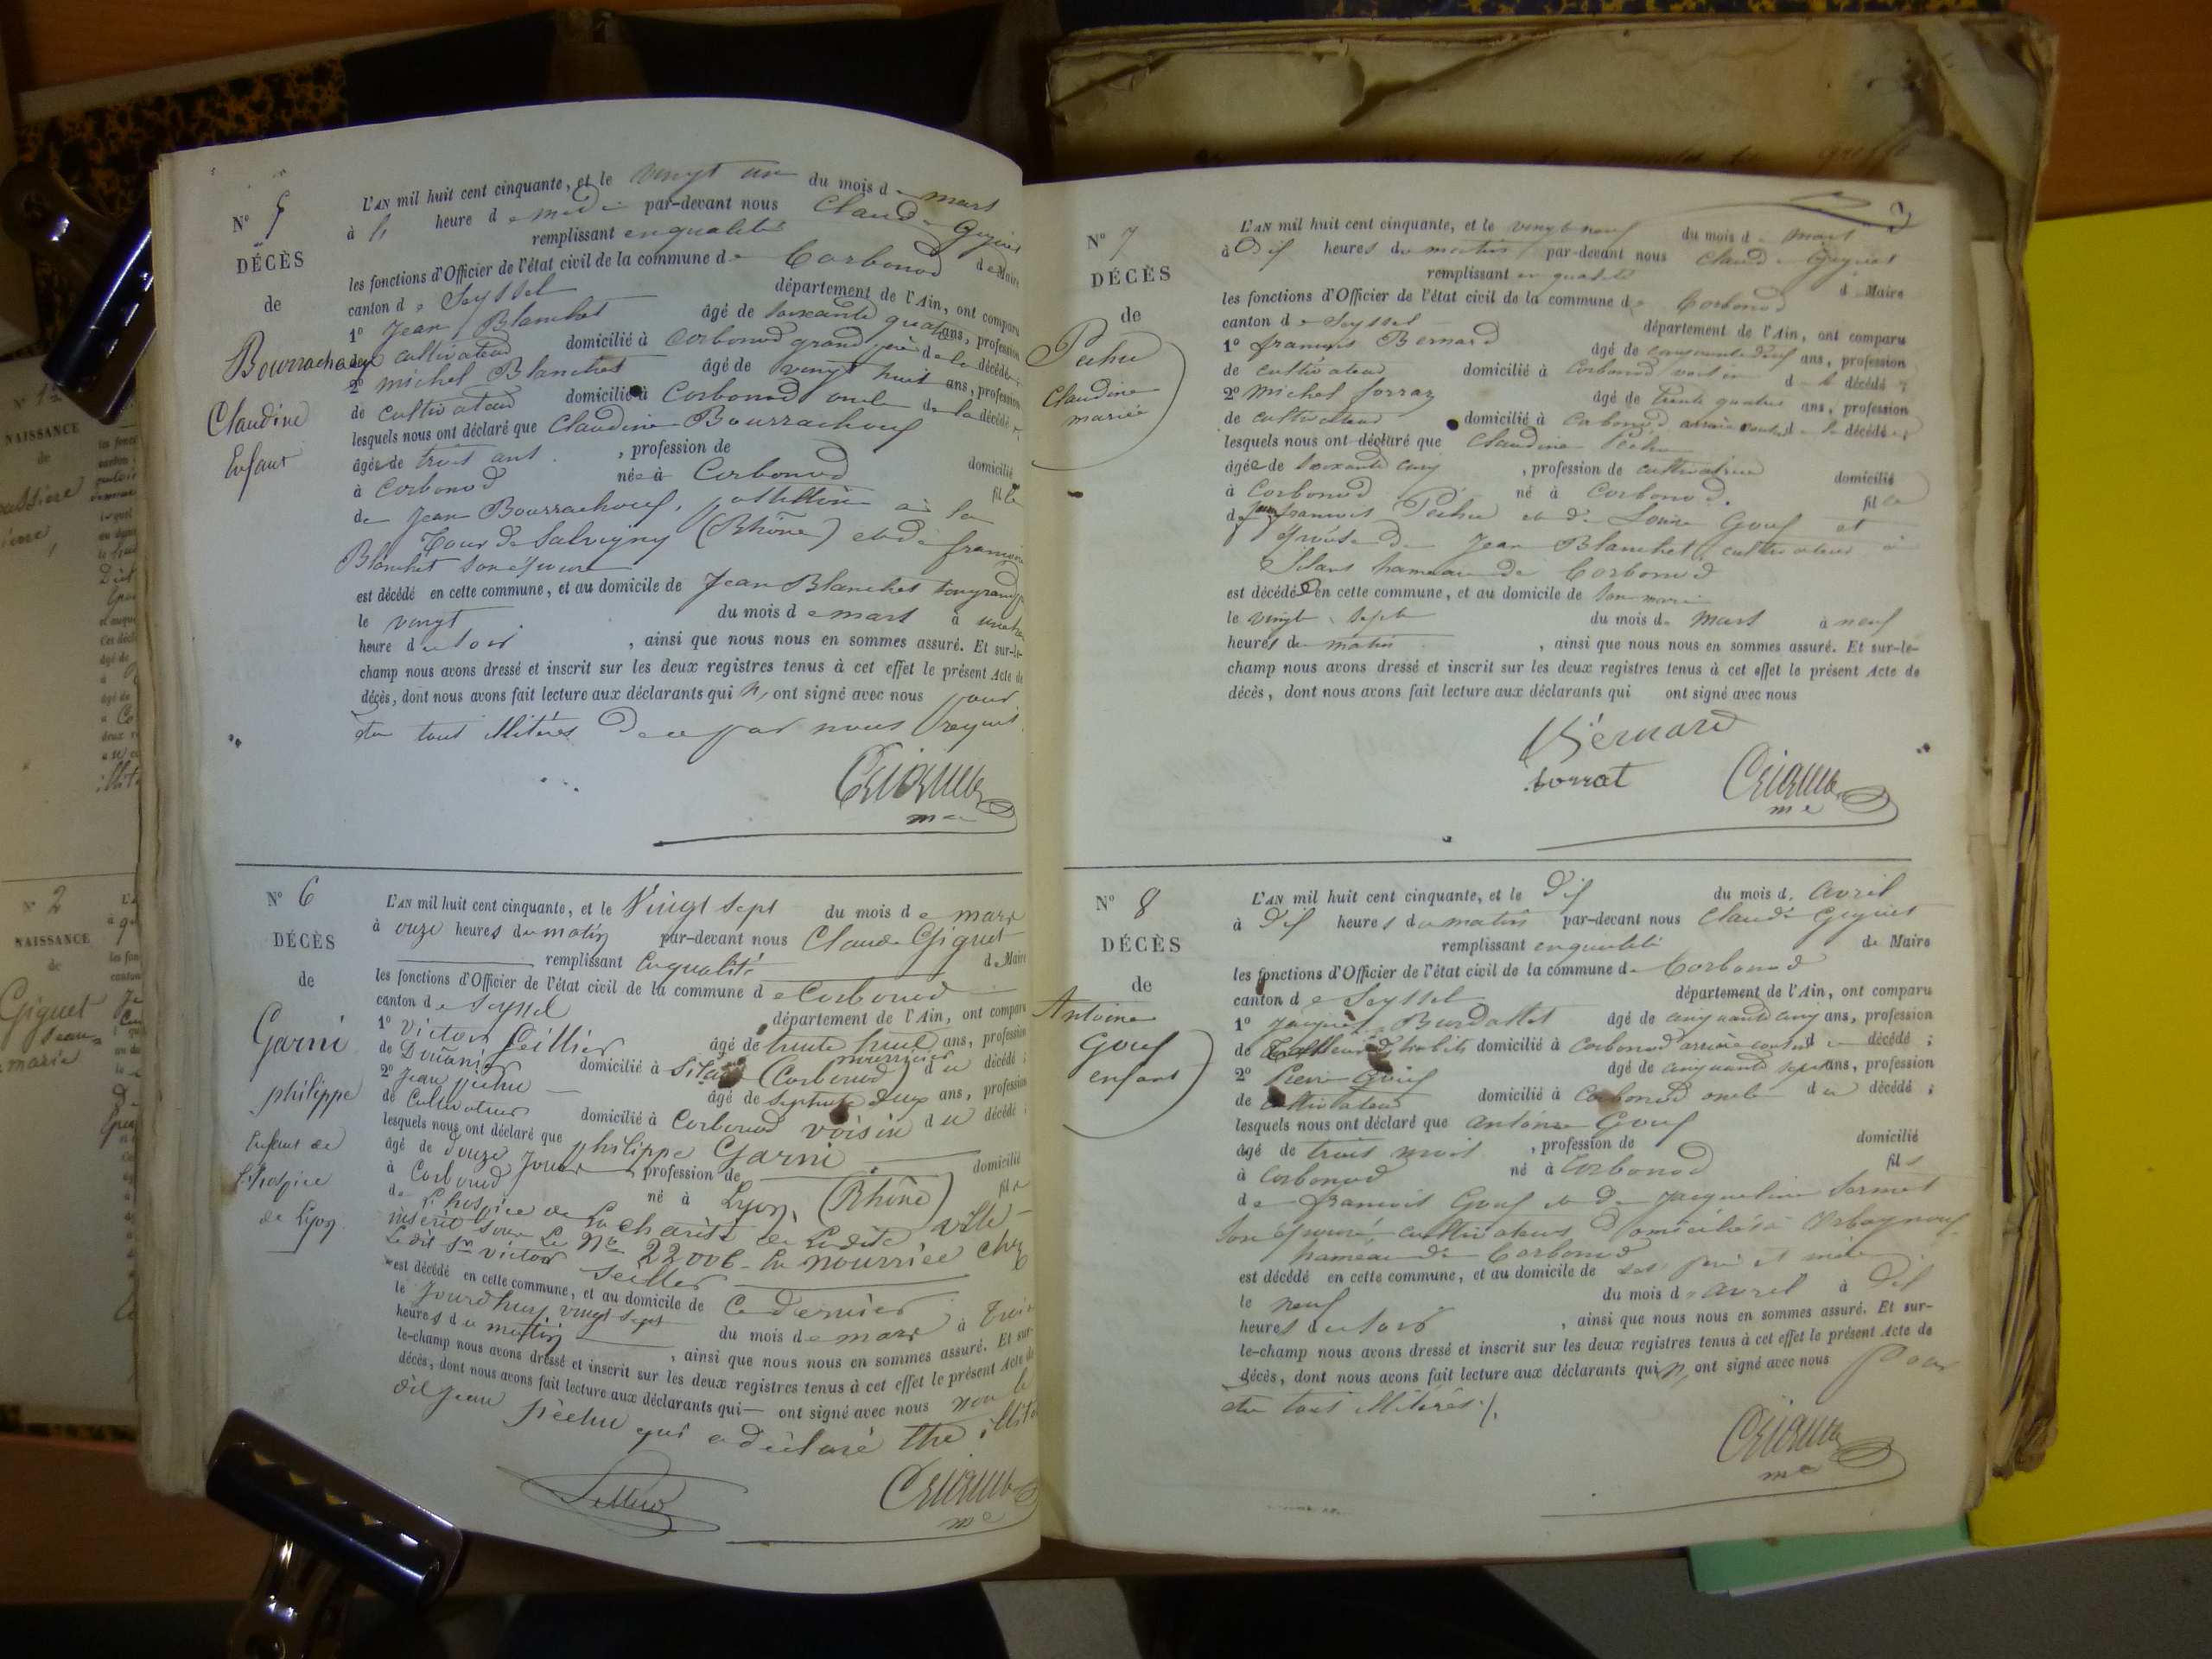 N° 5
DÉCÈS
de
Claudine
Enfant
L'AN mil huit cent cinquante, et le vingt un du mois de mars
à heure de midi par-devant nous Claude Giguet
remplissant en qualité de Maire
les fonctions d'Officier de l'état civil de la commune de Corbonod
canton de Seyssel département de l'Ain, ont comparu
1° Jean Blanchet âgé de soixante quatre ans, profession
de cultivateur domicilié à Corbonod grand père de la décédée
2° michel Blanchet âgé de vingt huit ans, profession
de cultivateur domicilié à Corbonod oncle de la décédée
lesquels nous ont déclaré que Claudine Bourrachouf
âgée de trois ans , profession de domicilié
à Corbonod née à Corbonod fille
de Jean Bourrachouf, à la
Tour de Salvigny (Rhône) et de françoise
Blanchet son épouse
est décédé en cette commune, et au domicile de Jean Blanchet son grand
le vingt du mois de mars à
heure du soir , ainsi que nous nous en sommes assuré. Et sur-le-
champ nous avons dressé et inscrit sur les deux registres tenus à cet effet le présent Acte de
décès, dont nous avons fait lecture aux déclarants qui n'ont signé avec nous pour
être tous illitérés de ce par nous requis
me
N° 6
DÉCÈS
de
Garni
philippe
Enfant de
l'hospice
de Lyon
L'AN mil huit cent cinquante, et le Vingt sept du mois de mars
à onze heures du matin par-devant nous Claude Giguet
remplissant en qualité de Maire
les fonctions d'Officier de l'état civil de la commune de Corbonod
canton de Seyssel département de l'Ain, ont comparu
1° Victor Seillier âgé de trente huit ans, profession
de domicilié à Silan (Corbonod) nourricier du décédé ;
2° Jean péchu âgé de septante deux ans, profession
de Cultivateur domicilié à Corbonod voisin du décédé ;
lesquels nous ont déclaré que philippe Garni
âgé de douze jours , profession de domicilié
à Corbonod né à Lyon, (Rhône) fils
de l'hospice de la charité de Ladite ville
inscrit sous le N° 22006 en nourrice chez
Le dit Sr victor Seillier
est décédé en cette commune, et au domicile de Ce dernier
le Jourd'huy vingt sept du mois de mars à trois
heures du matin , ainsi que nous nous en sommes assuré. Et sur-
le-champ nous avons dressé et inscrit sur les deux registres tenus à cet effet le présent Acte de
décès, dont nous avons fait lecture aux déclarants qui ont signé avec nous non le
dit Jean péchu qui a déclaré être
me
3
N° 7
DÉCÈS
de
Péchu
Claudine
mariée
L'AN mil huit cent cinquante, et le vingt neuf du mois de mars
à Dix heures du matin par-devant nous Claude Giguet
remplissant en qualité de Maire
les fonctions d'Officier de l'état civil de la commune de Corbonod
canton de Seyssel département de l'Ain, ont comparu
1° françois Bernard âgé de ans, profession
de cultivateur domicilié à Corbonod voisin de la décédée
2° michel forraz âgé de trente quatre ans, profession
de cultivateur domicilié à Corbonod arrière cousin de la décédée ;
lesquels nous ont déclaré que Claudine Péchu
âgée de soixante cinq , profession de cultivatrice domicilié
à Corbonod né à Corbonod. fille
de françois Péchu et de Louise Gouf et
épouse de Jean Blanchet, cultivateur à
Silans hameau de Corbonod
est décédée en cette commune, et au domicile de son mari
le vingt sept du mois de mars à neuf
heures du matin , ainsi que nous nous en sommes assuré. Et sur-le-
champ nous avons dressé et inscrit sur les deux registres tenus à cet effet le présent Acte de
décès, dont nous avons fait lecture aux déclarants qui ont signé avec nous
Bernard
me
N° 8
DÉCÈS
de
Antoine
Gouf
enfant
L'AN mil huit cent cinquante, et le Dix du mois d avril
à Dix heures du matin par-devant nous Claude Giguet
remplissant en qualité de Maire
les fonctions d'Officier de l'état civil de la commune de Corbonod
canton de Seyssel département de l'Ain, ont comparu
1° Jacques Burdallet âgé de cinquante cinq ans, profession
de Tailleur d'habits domicilié à Corbonod arrière cousin du décédé ;
2° Pierre Gouf âgé de cinquante sept ans, profession
de cultivateur domicilié à Corbonod oncle du décédé ;
lesquels nous ont déclaré que antoine Gouf
âgé de trois mois , profession de domicilié
à Corbonod né à Corbonod fils
de françois Gouf et de Jacqueline
son épouse cultivateurs Domiciliés à Orbagnoux
hameau de Corbonod
est décédé en cette commune, et au domicile de ses père et mère
le neuf du mois d'avril à Dix
heures du soir , ainsi que nous nous en sommes assuré. Et sur-
le-champ nous avons dressé et inscrit sur les deux registres tenus à cet effet le présent Acte de
décès, dont nous avons fait lecture aux déclarants qui n'ont signé avec nous Pour
être tous illitérés
me